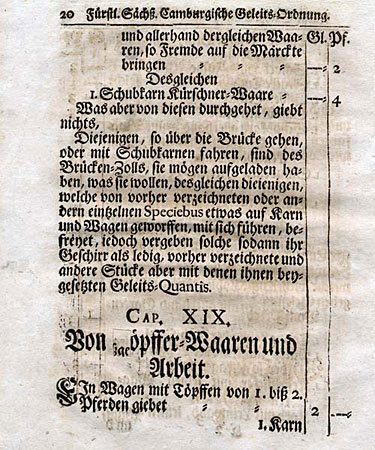 20 Fürstl. Sächß. Camburgische Geleits-Ordnung.
und allerhand dergleichen Waa- Gl. Pf.
ren, so Fremde auf die Märckte
bringen — 2
Desgleichen
1. Schubkarn Kürschner-Waare — 4
Was aber von diesen durchgehet, giebt
nichts,
Diejenigen, so über die Brücke gehen,
oder mit Schubkarnen fahren, sind des
Brücken-Zolls, sie mögen aufgeladen ha-
ben, was sie wollen, desgleichen dieienigen,
welche von vorher verzeichneten oder an-
dern eintzelnen Speciebus etwas auf Karn
und Wagen geworffen, mit sich führen, be-
freyet, iedoch vergeben solche sodann ihr
Geschirr als ledig, vorher verzeichnete und
andere Stücke aber mit denen ihnen bey-
gesetzten Geleits-Quantis.
CAP. XIX.
Von öpffer-Waaren und
Arbeit.
EIn Wagen mit Töpffen von 1. biß 2.
Pferden giebet 2 —
1. Karn